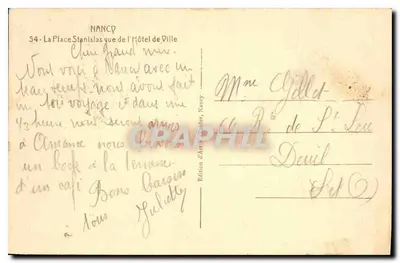 NANCY
34 - La Place Stanislas vue de l'Hôtel de Ville
Chère Grand mère.
Nous voici à Nancy avec un
beau temps, nous avons fait
un bon voyage et dans une
1/2 heure nous serons
à nous
un bock à la terrasse
d'un café Bons baisers
à tous Juliette
Edition d'Art Nancy
CPARAMA
Mme Gillet
de St Leu
Deuil
S et O